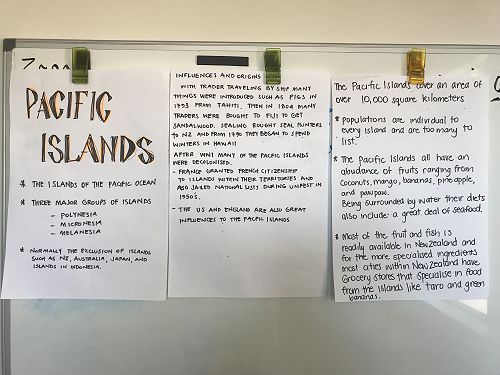 PACIFIC
ISLANDS
* THE ISLANDS OF THE PACIFIC OCEAN
* THREE MAJOR GROUPS OF ISLANDS
- POLYNESIA
- MICRONESIA
- MELANESIA
* NORMALLY THE EXCLUSION OF ISLANDS
SUCH AS NZ, AUSTRALIA, JAPAN, AND
ISLANDS IN INDONESIA.
INFLUENCES AND ORIGINS
WITH TRADER TRAVELING BY SHIP MANY
THINGS WERE INTRODUCED SUCH AS PIGS IN
1793 FROM TAHITI, THEN IN 1804 MANY
TRADERS WERE BOUGHT TO FIJI TO GET
SANDALWOOD. SEALING BOUGHT SEAL HUNTERS
TO NZ AND FROM 1790 THEY BEGAN TO SPEND
WINTERS IN HAWAII
AFTER WW1 MANY OF THE PACIFIC ISLANDS
WERE DECOLONISED.
- FRANCE GRANTED FRENCH CITIZENSHIP
TO ISLANDS WITHIN THEIR TERRITORIES AND
ALSO JAILED NATIONAL LISTS DURING UNFEST IN
1950'S.
- THE US AND ENGLAND ARE ALSO GREAT
INFLUENCES TO THE PACIFIC ISLANDS
The Pacific Islands cover an area of
over 10,000 square kilometers
* Populations are individual to
every island and are too many to
list.
* The Pacific Islands all have an
abudance of fruits ranging from
coconuts, mango, bananas, pineapple,
and pawpaw.
Being surrounded by water their diets
also include a great deal of seafood.
* Most of the fruit and fish is
readily available in New Zealand and
for the more specialised ingredients
most cities within New Zealand have
Grocery stores that specialise in food
from the islands like taro and green
bananas.